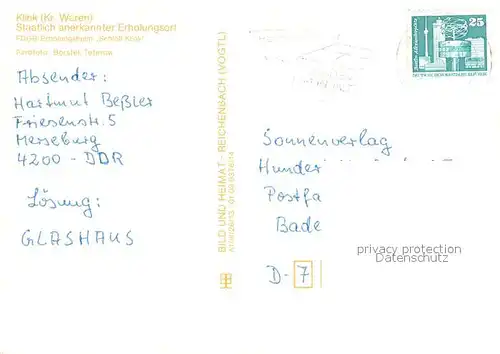 Klink (Kr. Waren)
Staatlich anerkannter Erholungsort
FDGB-Erholungsheim „Schloß Klink“
Absender:
Hartmut Beßler
Friesenstr. 5
Merseburg
4200 - DDR
Lösung:
GLASHAUS
BILD UND HEIMAT · REICHENBACH (VOGTL)
25
Sonnenverlag
Hunder
Postfa
Bade
D- 7
privacy protection
Datenschutz